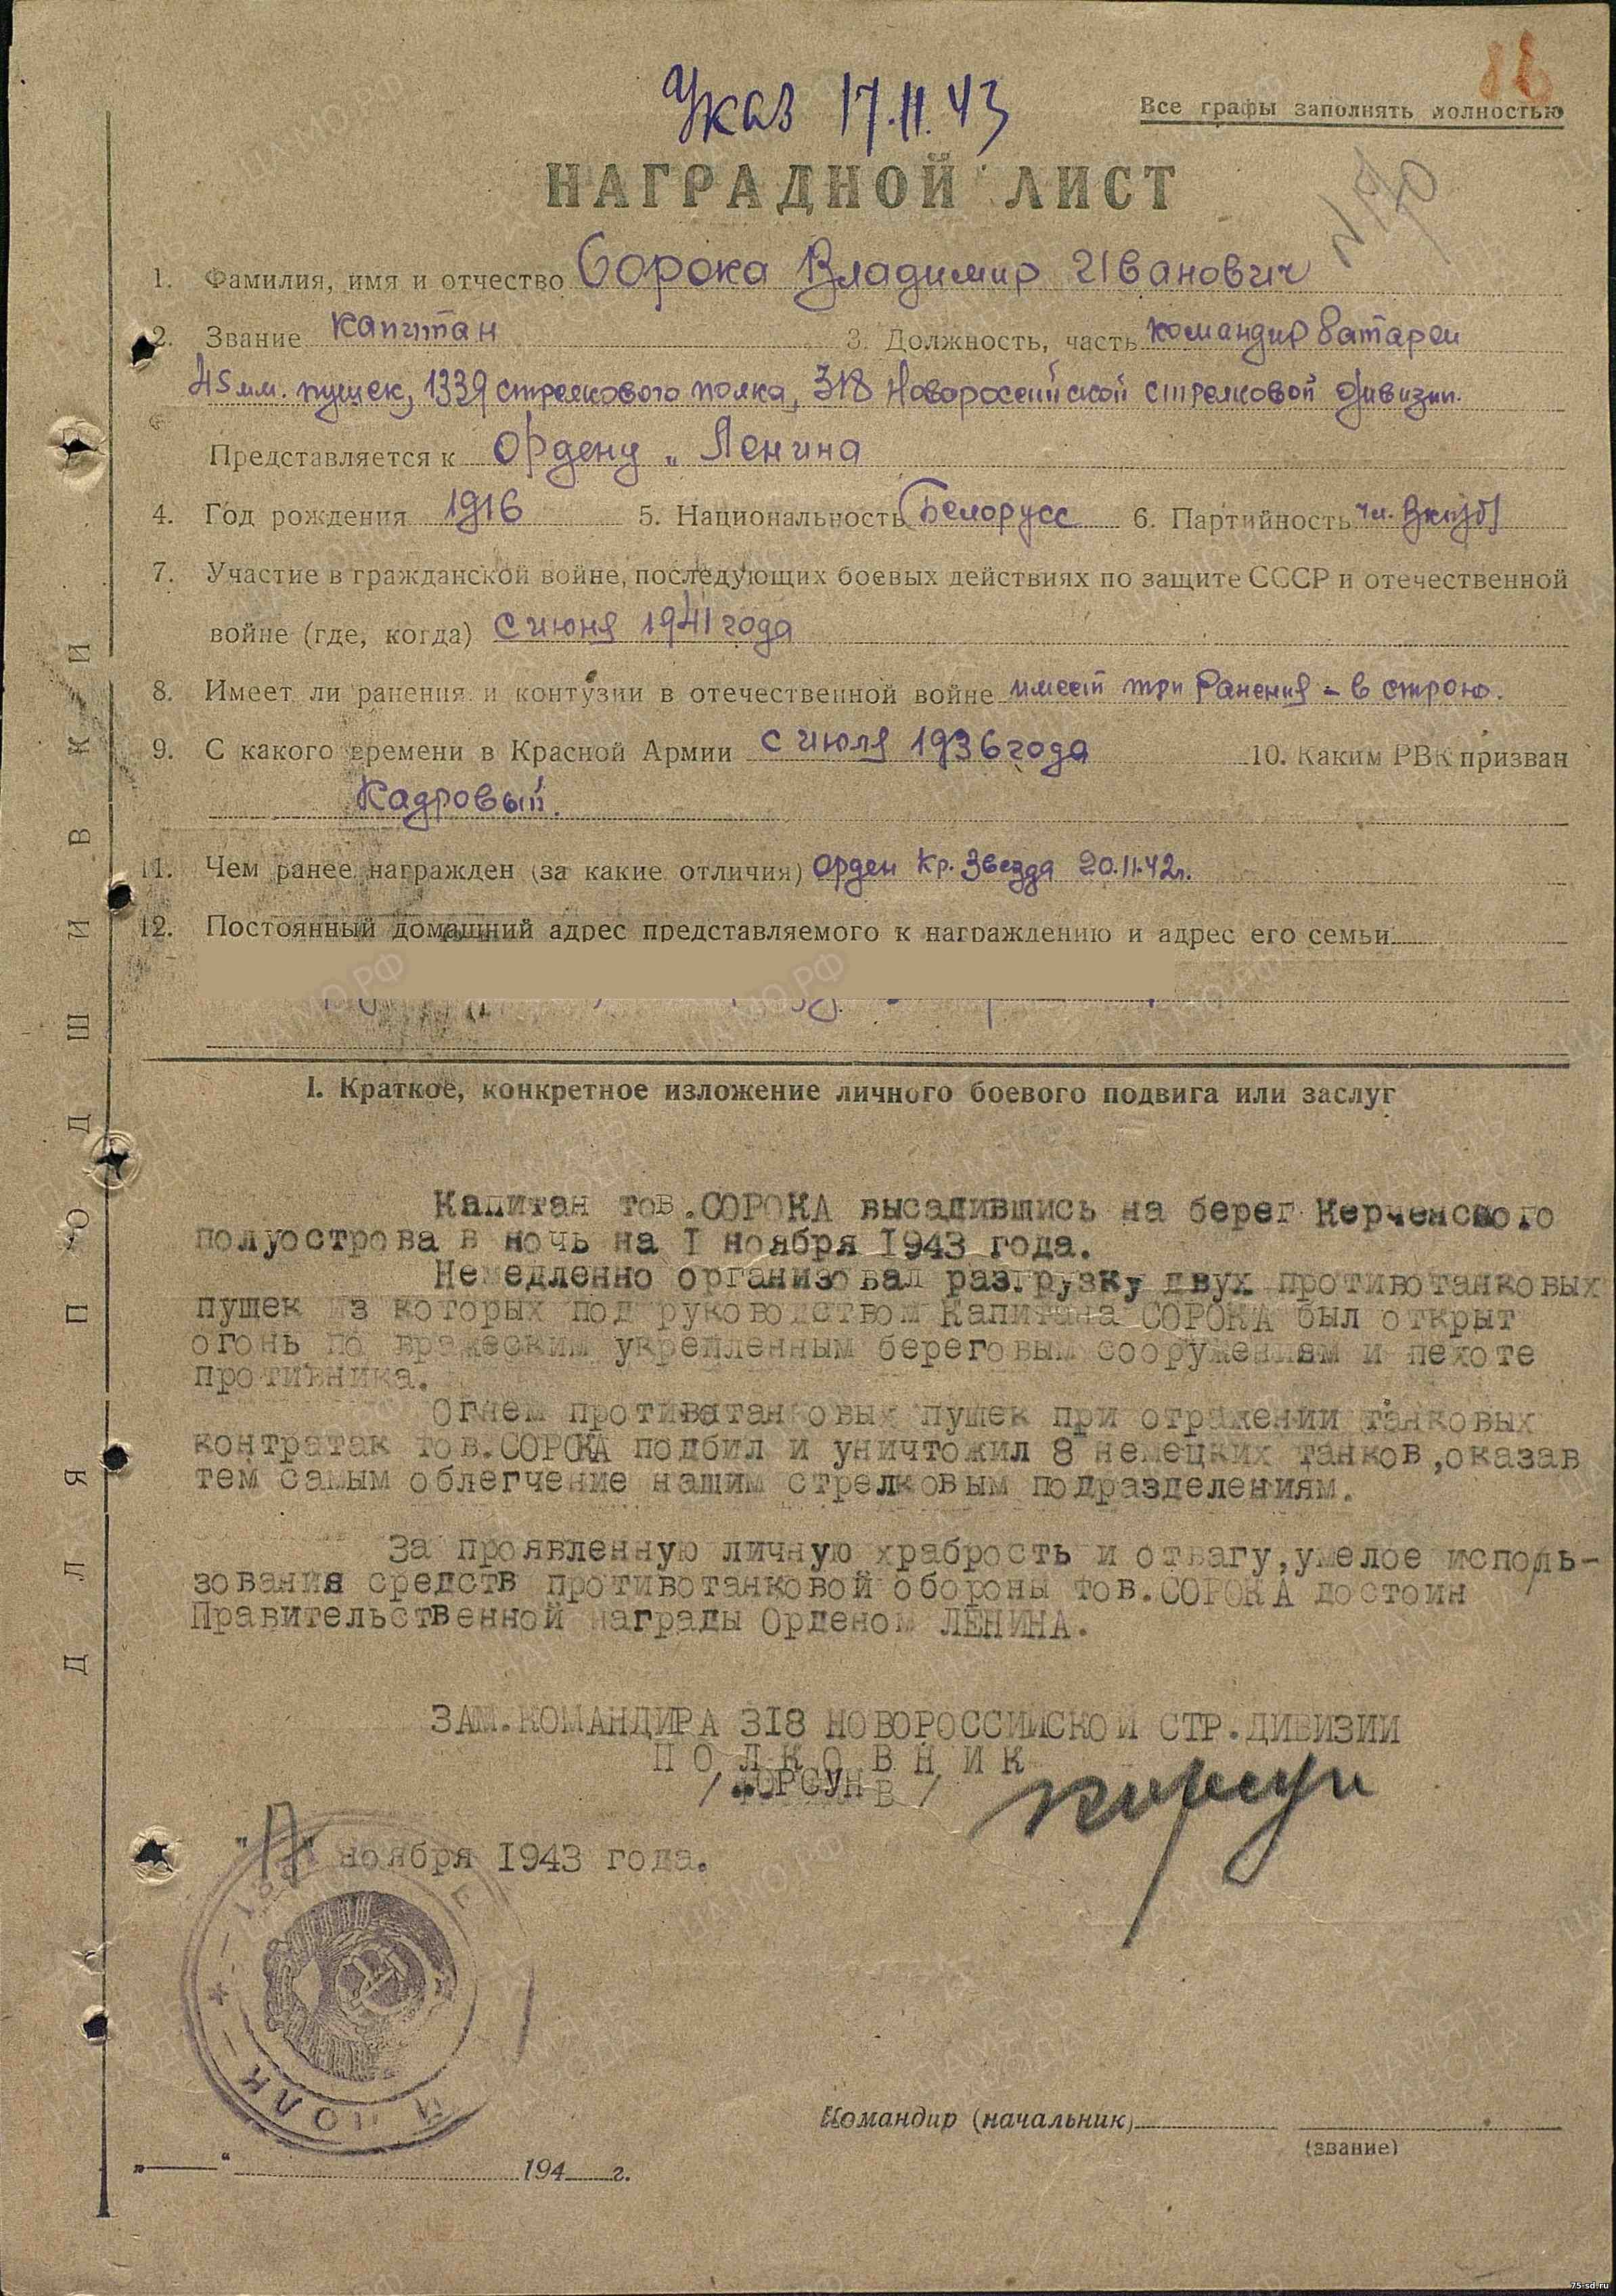 Указ 17.11.43
Все графы заполнять полностью
НАГРАДНОЙ ЛИСТ
1. Фамилия, имя и отчество Сорока Владимир Иванович
2. Звание капитан 3. Должность, часть командир батареи
45 мм. пушек, 1339 стрелкового полка, 318 Новоросийской стрелковой дивизии.
Представляется к Ордену „Ленина
4. Год рождения 1916 5. Национальность Белорусс 6. Партийность чл. ВКП(б)
7. Участие в гражданской войне, последующих боевых действиях по защите СССР и отечественной
войне (где, когда) с июня 1941 года
8. Имеет ли ранения и контузии в отечественной войне имеет три ранения - в строю.
9. С какого времени в Красной Армии с июля 1936 года 10. Каким РВК призван
Кадровый.
11. Чем ранее награжден (за какие отличия) орден Кр. Звезда 20.11.42г.
12. Постоянный домашний адрес представляемого к награждению и адрес его семьи
I. Краткое, конкретное изложение личного боевого подвига или заслуг
Капитан тов.СОРОКА высадившись на берег Керченского
полуострова в ночь на I ноября 1943 года.
Немедленно организовал разгрузку двух противотанковых
пушек из которых под руководством Капитана СОРОКА был открыт
огонь по вражеским укрепленным береговым сооружениям и пехоте
противника.
Огнем противотанковых пушек при отражении танковых
контратак тов.СОРОКА подбил и уничтожил 8 немецких танков,оказав
тем самым облегчение нашим стрелковым подразделениям.
За проявленную личную храбрость и отвагу,умелое исполь-
зования средств противотанковой обороны тов.СОРОКА достоин
Правительственной награды Орденом ЛЕНИНА.
ЗАМ.КОМАНДИРА 318 НОВОРОССИЙСКОЙ СТР.ДИВИЗИИ
ПОЛКОВНИК
/ КОРСУН В /
"17" ноября 1943 года.
ПОЛК
Командир (начальник)
(звание)
„ “ 194 г.
ДЛЯ ПОДШИВКИ
75-sd.ru